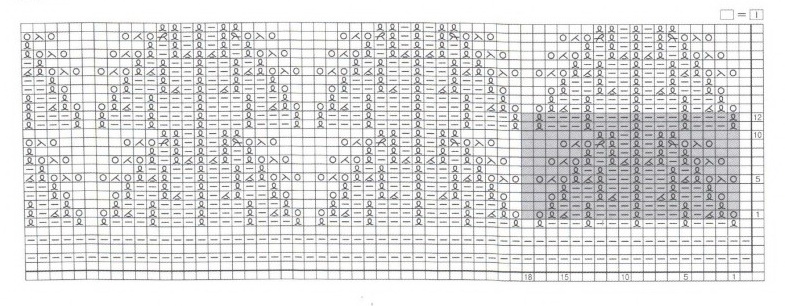 □ = |
12
10
5
1
18 15 10 5 1